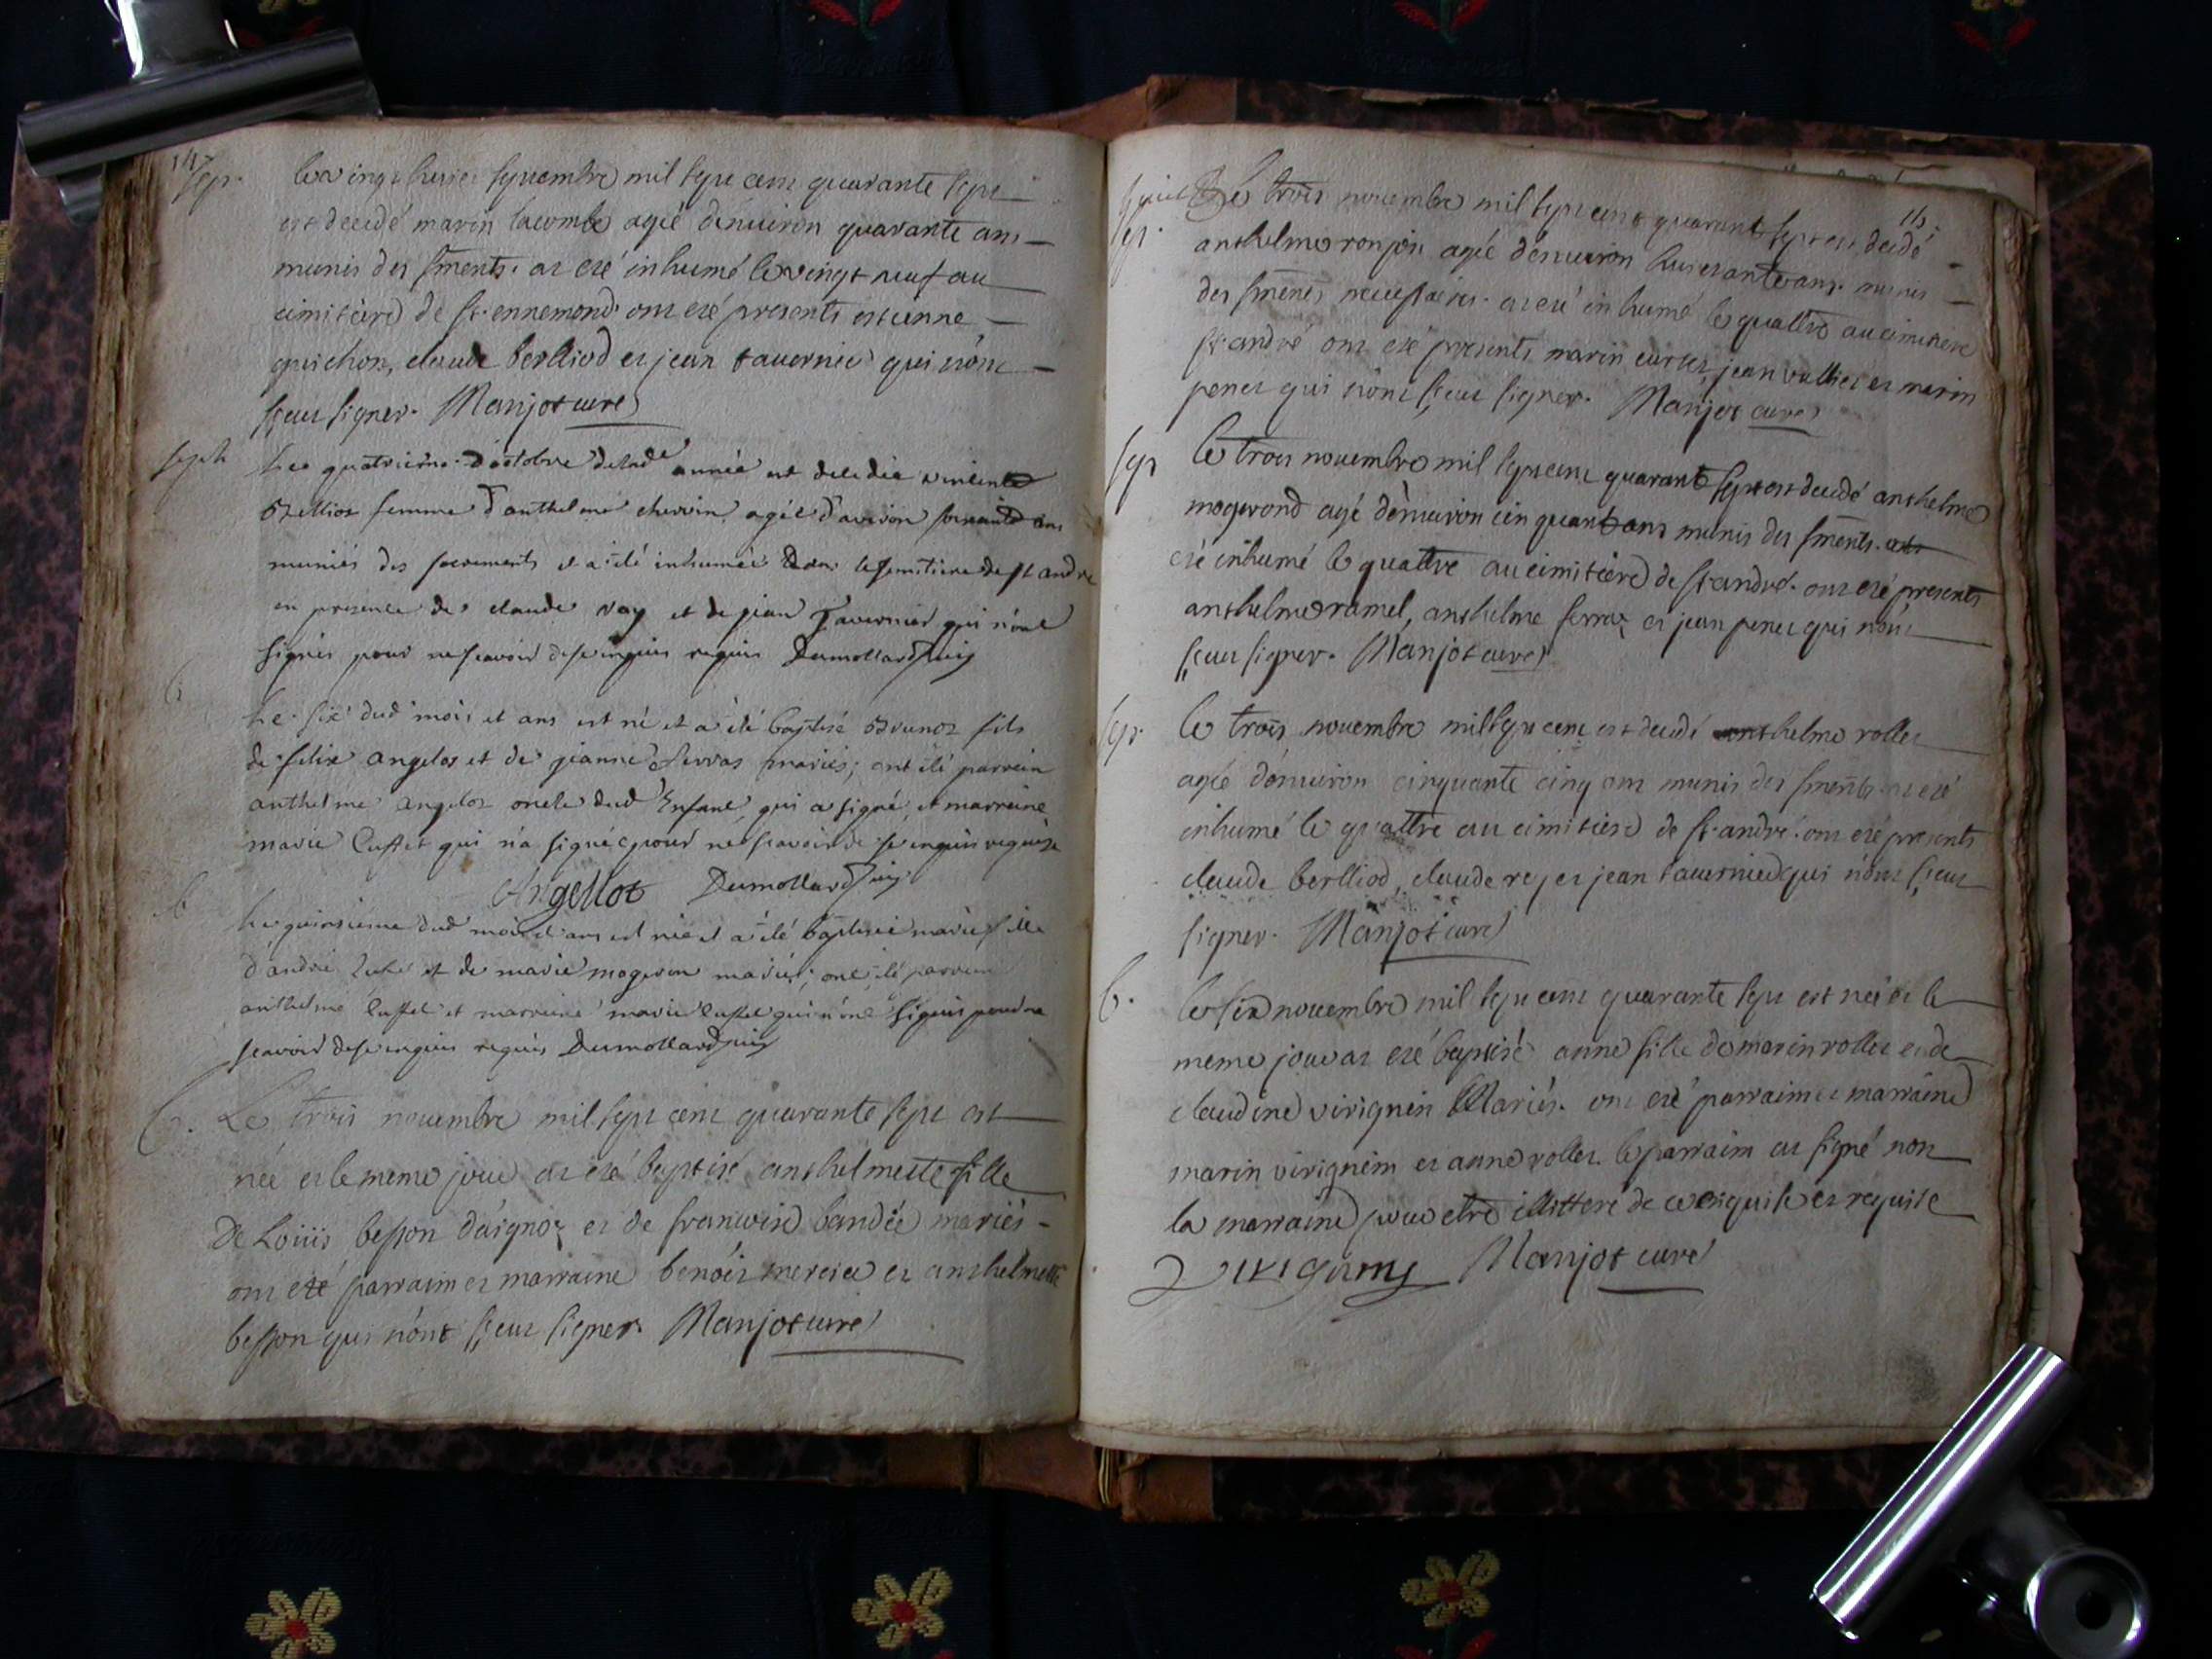 14
sep.
le vingt huict septembre mil sept cent quarante sept
est decedé marin lacombe agé denuiron quarante ans
munis des sments. at eté inhumé le vingt neuf au
cimitiere de st. ennemond ont eté presents estienne
guichon, claude berlliod et jean tauernier qui nônt
sçeut signer. Manjot curé
seph
Le quatrieme d'octobre de lade année est decedée
femme d'anthelme chervin agée d'aviron soixante ans
munies des sacrements et a été inhumée dans le semitiere de st andre
en presence de claude ray et de jean Tavernier qui n'ont
signés pour ne scavoir de ce enquis requis Dumollard
b
Le six dud mois et ans est né et a été baptisé Brunot fils
de felix angelot et de jeanne Serras mariés; ont été parrein
anthelme angelot oncle dud Enfant, qui a signé, et marreine
marie Cuffet qui n'a signée pour ne scavoir de ce enquis requise
Angellot Dumollard
b
Le quinsieme dud mois et ans est née et a été baptisée marie fille
d'andré et de marie mogeron mariés; ont été parrein
anthelme Cuffet et marreine marie Cuffet qui n'ont signés pour ne
scavoir de ce enquis requis Dumollard
b.
Le trois nouembre mil sept cent quarante sept est
née et le meme jour at eté baptisé anthelmette fille
De Loüis besson daignoz et de francoise bandée mariés
ont eté parraim et marraine benoit mercier et anthelmette
besson qui nônt sçeut signer. Manjot curé
15.
sep.
Le trois nouembre mil sept cent quarante sept est decedé
anthelme ronjon agée dénuiron huictante ans. munis
des sments necessaires. at eté inhumé le quattre au cimitiere
st. andré ont eté presents marin curtet, jean vullier et marin
penet qui nônt sçeut signer. Manjot curé
sep
le trois nouembre mil sept cent quarante sept est decedé anthelme
mogerond agé dènuiron cinquante ans munis des sments. at
eté inhumé le quattre au cimitiere de st. andré. ont eté presents
anthelme ramel, anthelme ferraz et jean penet qui nônt
sçeut signer. Manjot curé
sep.
le trois nouembre mil sept cent est decedé anthelme rollet
agée dénuiron cinquante cinq ans munis des sments. at eté
inhumé le quattre au cimitiere de st. andré. ont eté presents
claude berlliod, claude rey et jean tauernier qui nônt sçeut
signer. Manjot curé
b.
le six nouembre mil sept cent quarante sept est née et le
meme jour at eté baptisé anne fille de marin rollet et de
claudine virignin Mariés. ont eté parraim et marraine
marin virignin et anne rollet. le parraim at signé non
la marraine pour etre illittere de ce enquise et requise
Virignins Manjot curé